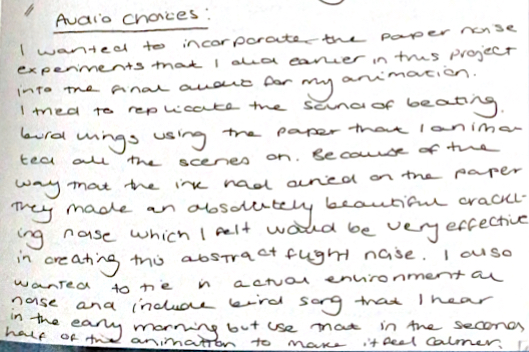 Audio Choices:
I wanted to incorporate the paper noise
experiments that I did earlier in this project
into the final audio for my animation.
I tried to replicate the sound of beating
bird wings using the paper that I anima-
ted all the scenes on. Because of the
way that the ink had dried on the paper
they made an absolutely beautiful crackl-
ing noise which I felt would be very effective
in creating this abstract flight noise. I also
wanted to tie in actual environmental
noise and include bird song that I hear
in the early morning but use that in the second
half of the animation to make it feel calmer.